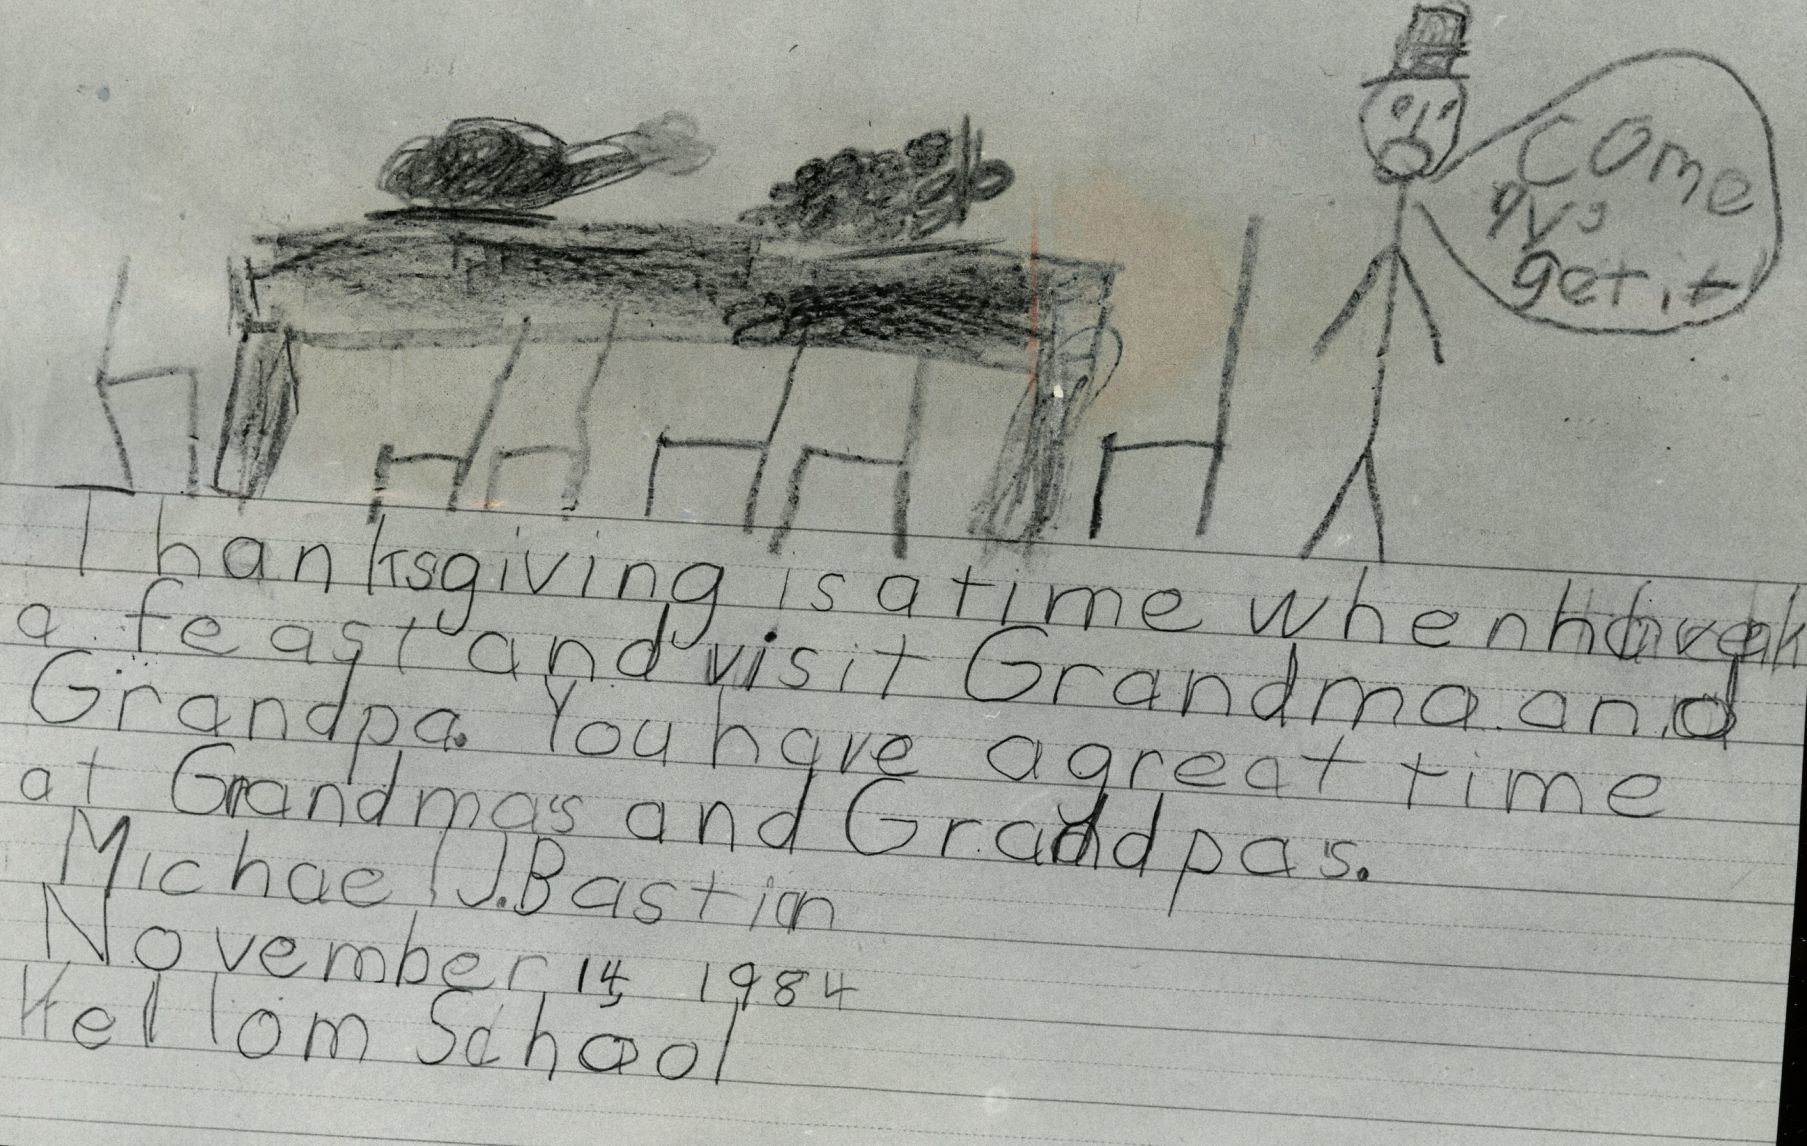 come
get it
Thanksgiving is a time when
a feast and visit Grandma and
Grandpa. You have a great time
at Grandmas and Grandpas.
Michael J. Bastian
November 14, 1984
Kellom School